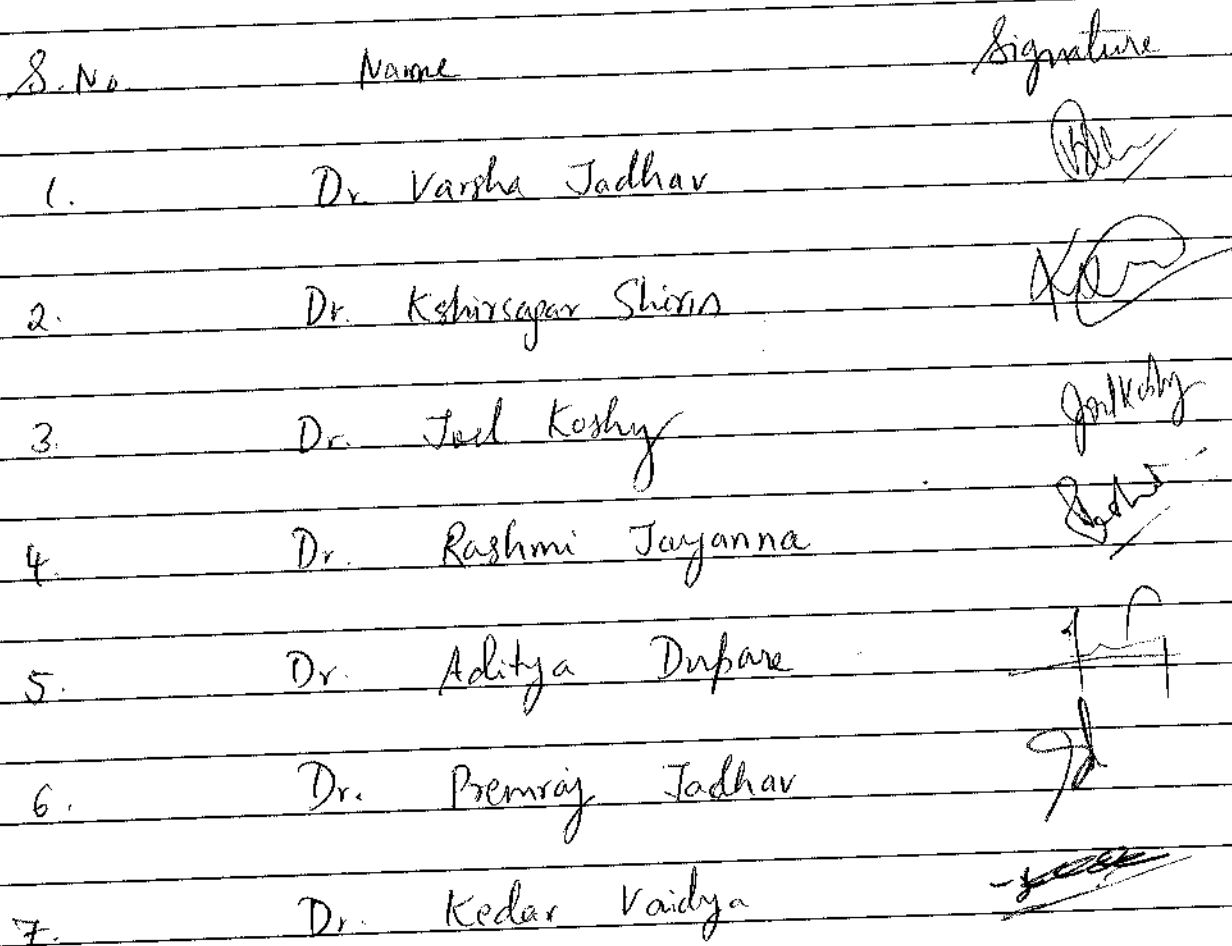 S. No. Name Signature
1. Dr. Varsha Jadhav
2. Dr. Kshirsagar Shirin
3. Dr. Joel Koshy JoelKoshy
4. Dr. Rashmi Jayanna
5. Dr. Aditya Durpare
6. Dr. Premraj Jadhav
7. Dr. Kedar Vaidya